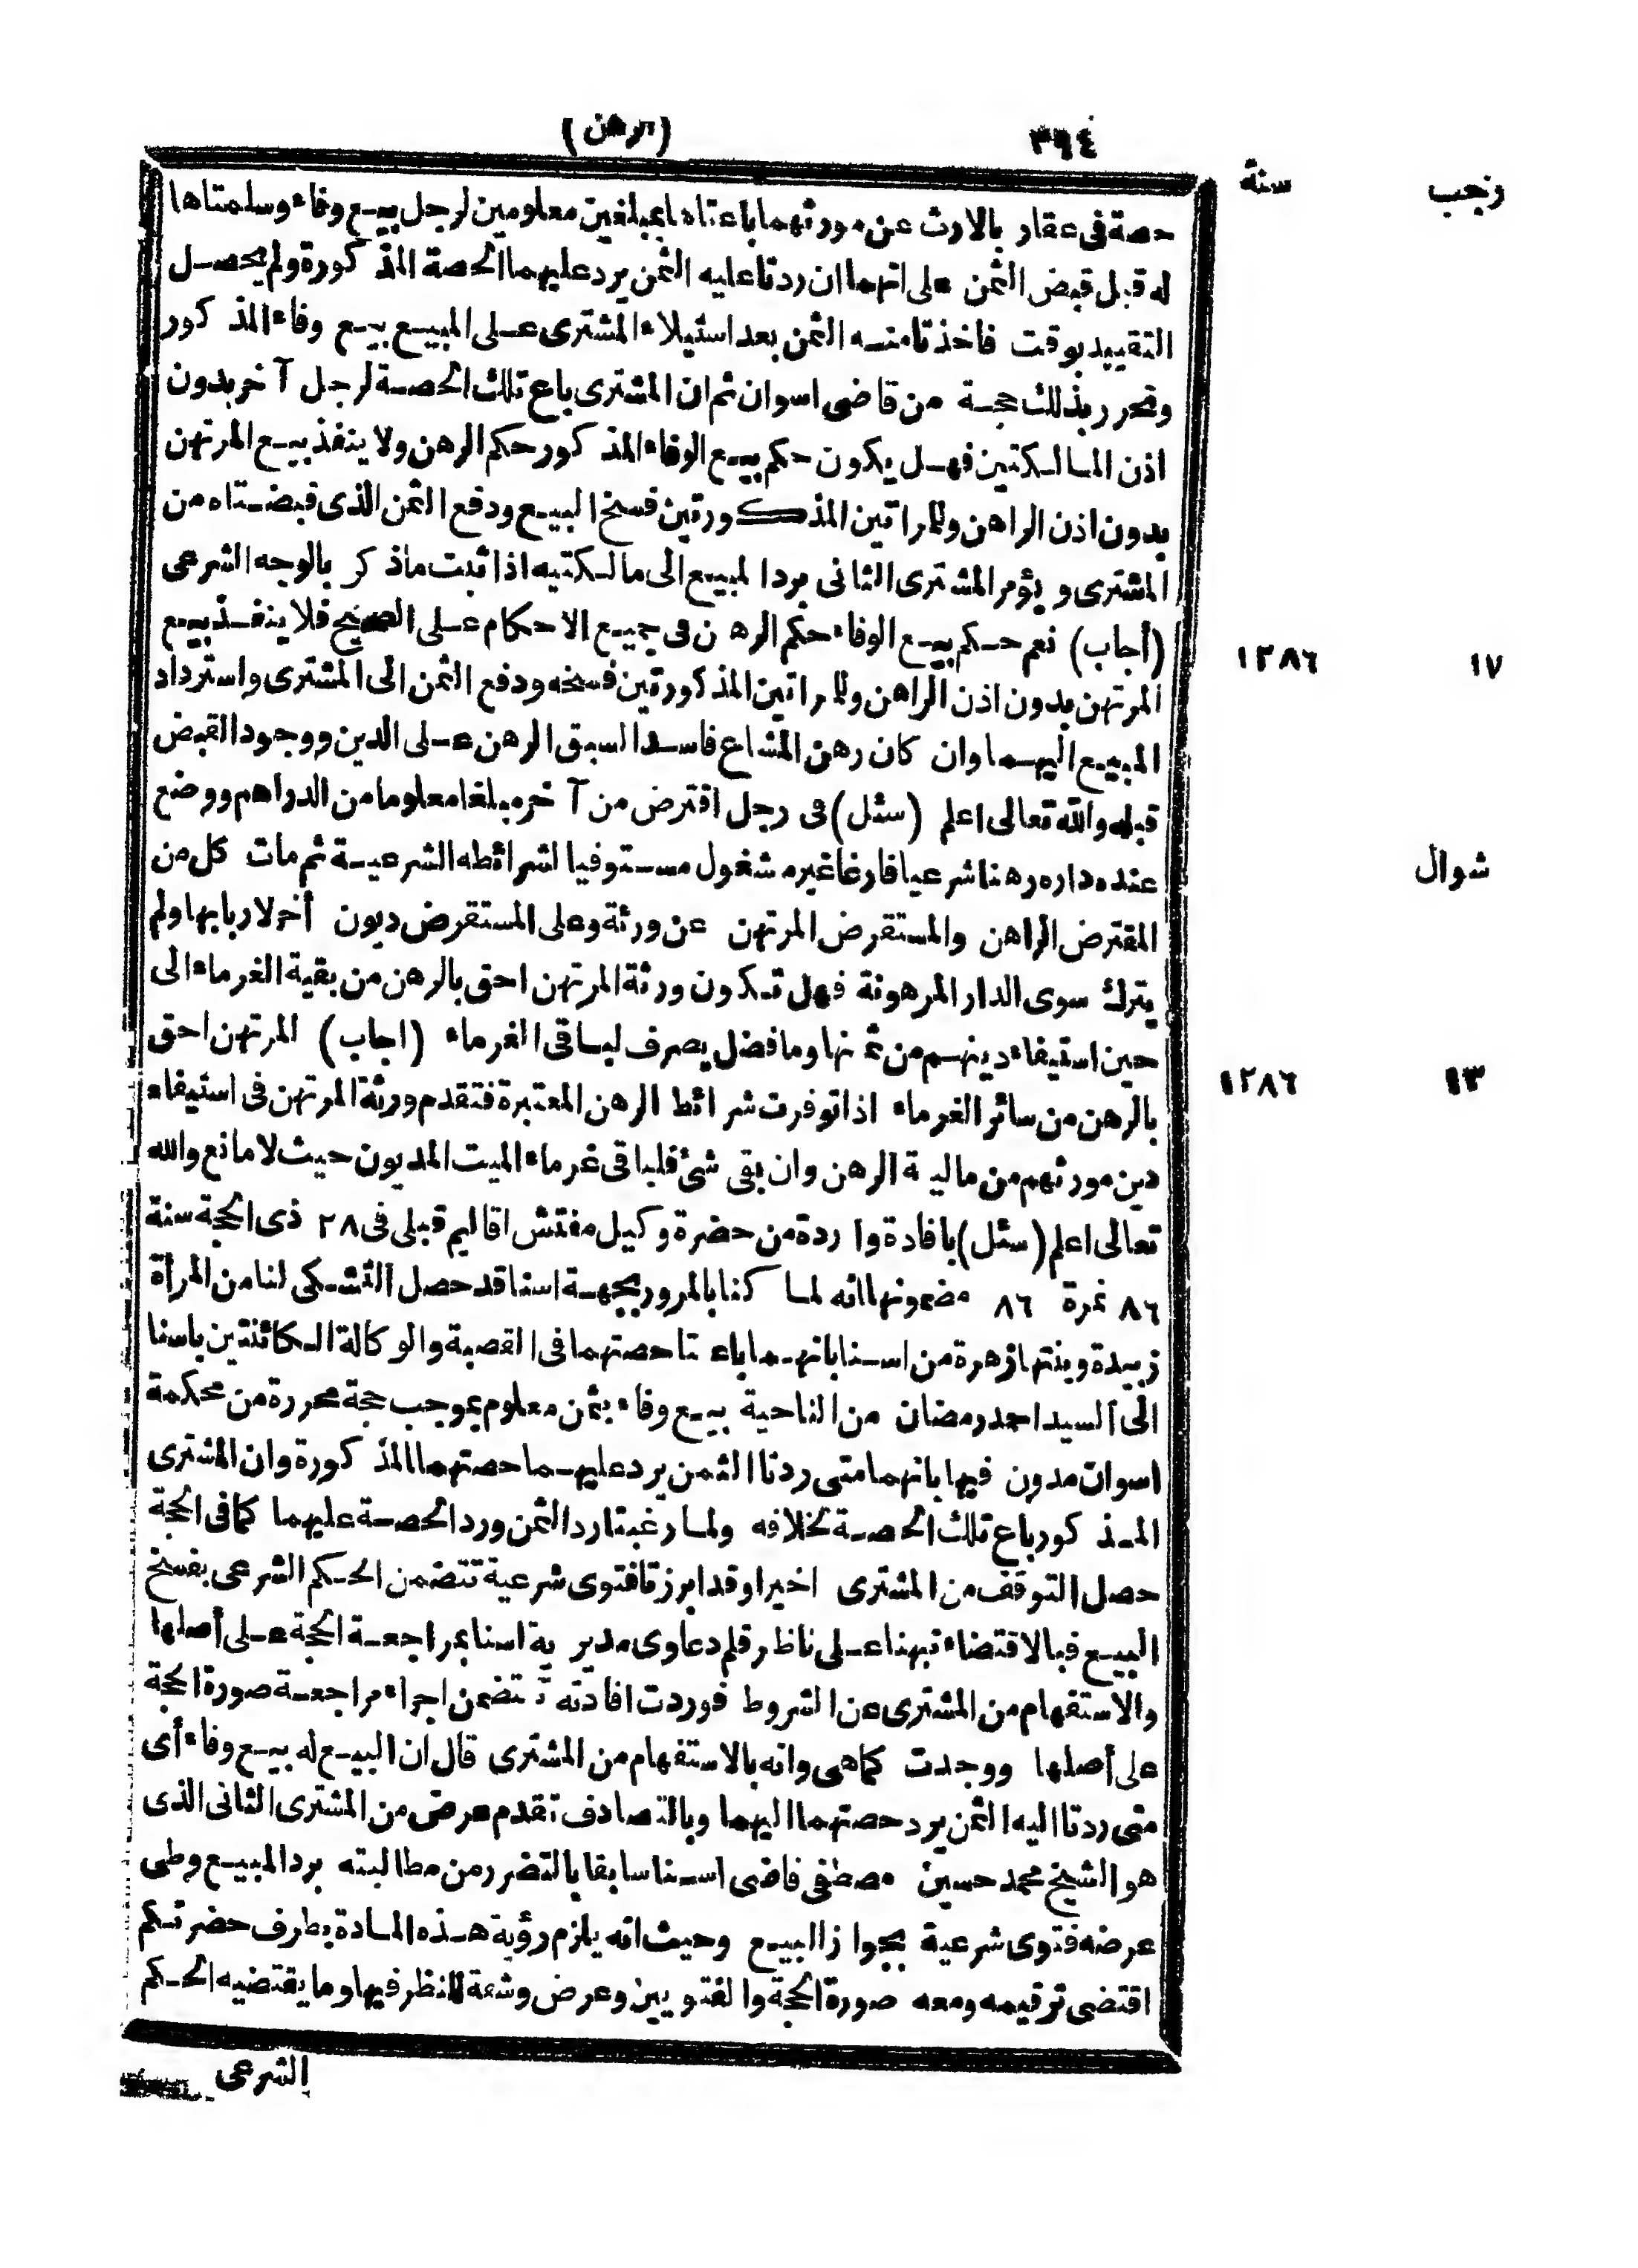 ٣٩٤ (الرهن)
رجب سنة
حصة فى عقار بالارث عن مورثهما باعتاها بمبلغين معلومين لرجل بيع وفاء وسلمتاها
له قبل قبض الثمن على انهما ان ردتا عليه الثمن يرد عليهما الحصة المذكورة ولم يحصل
التقييد بوقت فاخذتا منه الثمن بعد استيلاء المشترى على المبيع بيع وفاء المذكور
وتحرر بذلك حجة من قاضى اسوان ثم ان المشترى باع تلك الحصة لرجل آخر بدون
اذن المالكتين فهل يكون حكم بيع الوفاء المذكور حكم الرهن ولا ينفذ بيع المرتهن
بدون اذن الراهن وللمراتين المذكورتين فسخ البيع ودفع الثمن الذى قبضتاه من
المشترى ويؤمر المشترى الثانى برد المبيع الى مالكتيه اذا ثبت ماذكر بالوجه الشرعى
(أجاب) نعم حكم بيع الوفاء حكم الرهن فى جميع الاحكام على الصحيح فلا ينفذ بيع
١٧ ١٢٨٦
المرتهن بدون اذن الراهن وللمراتين المذكورتين فسخه ودفع الثمن الى المشترى واسترداد
المبيع اليهما وان كان رهن المشاع فاسدا لسبق الرهن على الدين ووجود القبض
قبله والله تعالى اعلم (سئل) فى رجل اقترض من آخر مبلغا معلوما من الدراهم ووضع
شوال
عنده داره رهنا شرعيا فارغا غير مشغول مستوفيا لشرائطه الشرعية ثم مات كل من
المقترض الراهن والمستقرض المرتهن عن ورثة وعلى المستقرض ديون أخر لاربابها ولم
يترك سوى الدار المرهونة فهل تكون ورثة المرتهن احق بالرهن من بقية الغرماء الى
حين استيفاء دينهم من ثمنها وما فضل يصرف لباقى الغرماء (اجاب) المرتهن احق
١٣ ١٢٨٦
بالرهن من سائر الغرماء اذا توفرت شرائط الرهن المعتبرة فتقدم ورثة المرتهن فى استيفاء
دين مورثهم من مالية الرهن وان بقى شئ فلباقى غرماء الميت المديون حيث لا مانع والله
تعالى اعلم (سئل) بافادة واردة من حضرة وكيل مفتش اقاليم قبلى فى ٢٨ ذى الحجة سنة
٨٦ نمرة ٨٦ مضمونها انه لما كنا بالمرور بجهة اسنا قد حصل التشكى لنا من المرأة
زبيدة وبنتها زهرة من اسنا بانهما باعتا حصتهما فى القصبة والوكالة الكائنتين باسنا
الى السيد احمد رمضان من الناحية بيع وفاء بثمن معلوم بموجب حجة محررة من محكمة
اسوان مدون فيها بانهما متى ردتا الثمن يرد عليهما حصتهما المذكورة وان المشترى
المذكور باع تلك الحصة لخلافه ولما رغبتا رد الثمن ورد الحصة عليهما كما فى الحجة
حصل التوقف من المشترى اخيرا وقد ابرزتا فتوى شرعية تتضمن الحكم الشرعى بفسخ
البيع فبالاقتضاء تبهنا على ناظر قلم دعاوى مديرية اسنا بمراجعة الحجة على أصلها
والاستفهام من المشترى عن الشروط فوردت افادته تتضمن اجراء مراجعة صورة الحجة
على أصلها ووجدت كماهى وانه بالاستفهام من المشترى قال ان البيع له بيع وفاء أى
متى ردتا اليه الثمن يرد حصتهما اليهما وبالتصادف تقدم عرض من المشترى الثانى الذى
هو الشيخ محمد حسين مصطفى قاضى اسنا سابقا بالتضرر من مطالبته برد المبيع وطى
عرضه فتوى شرعية بجواز البيع وحيث انه يلزم رؤية هذه المادة بطرف حضرتكم
اقتضى ترقيمه ومعه صورة الحجة والفتويين وعرض وشقة للنظر فيها وما يقتضيه الحكم
الشرعى